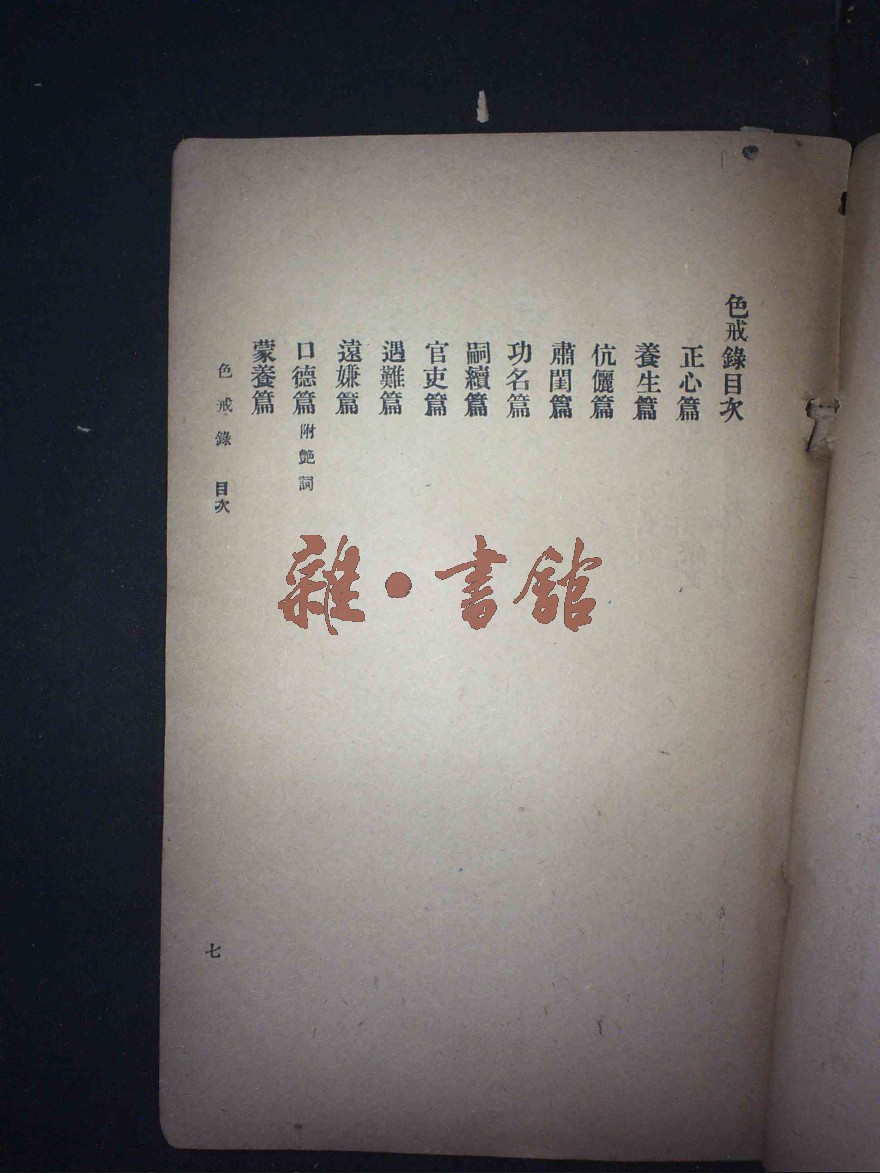 色戒錄目次
正心篇
養生篇
伉儷篇
肅閨篇
功名篇
嗣續篇
官吏篇
遇難篇
遠嫌篇
口德篇附艷詞
蒙養篇
色戒錄 目次
七
雜·書館